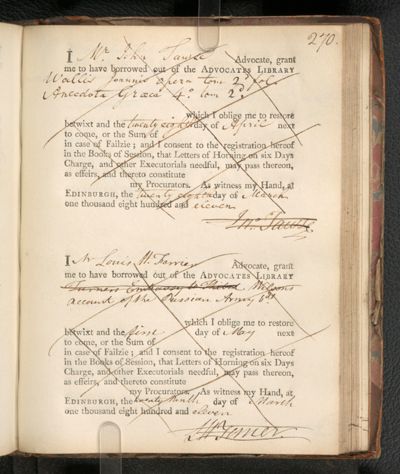 270.
I Mr John Tawse Advocate, grant
me to have borrowed out of the ADVOCATES LIBRARY
Wallis Joannis opera tom 2d fol.
Anecdota Græca 4o. tom 2d
which I oblige me to restore
betwixt and the twenty eight day of April next
to come, or the Sum of
in case of Failzie; and I consent to the registration hereof
in the Books of Session, that Letters of Horning on six Days
Charge, and other Executorials needful, may pass thereon,
as effeirs, and thereto constitute
my Procurators. As witness my Hand, at
EDINBURGH, the twenty eight day of March
one thousand eight hundred and eleven
Jno. Tawse
I Mr Louis Mc. Ferrier Advocate, grant
me to have borrowed out of the ADVOCATES LIBRARY
Turners Embassy to Thibet Wilsons
account of the Russian Army
which I oblige me to restore
betwixt and the first day of May next
to come, or the Sum of
in case of Failzie; and I consent to the registration hereof
in the Books of Session, that Letters of Horning on six Days
Charge, and other Executorials needful, may pass thereon,
as effeirs, and thereto constitute
my Procurators. As witness my Hand, at
EDINBURGH, the day of March
one thousand eight hundred and eleven
Ferrier